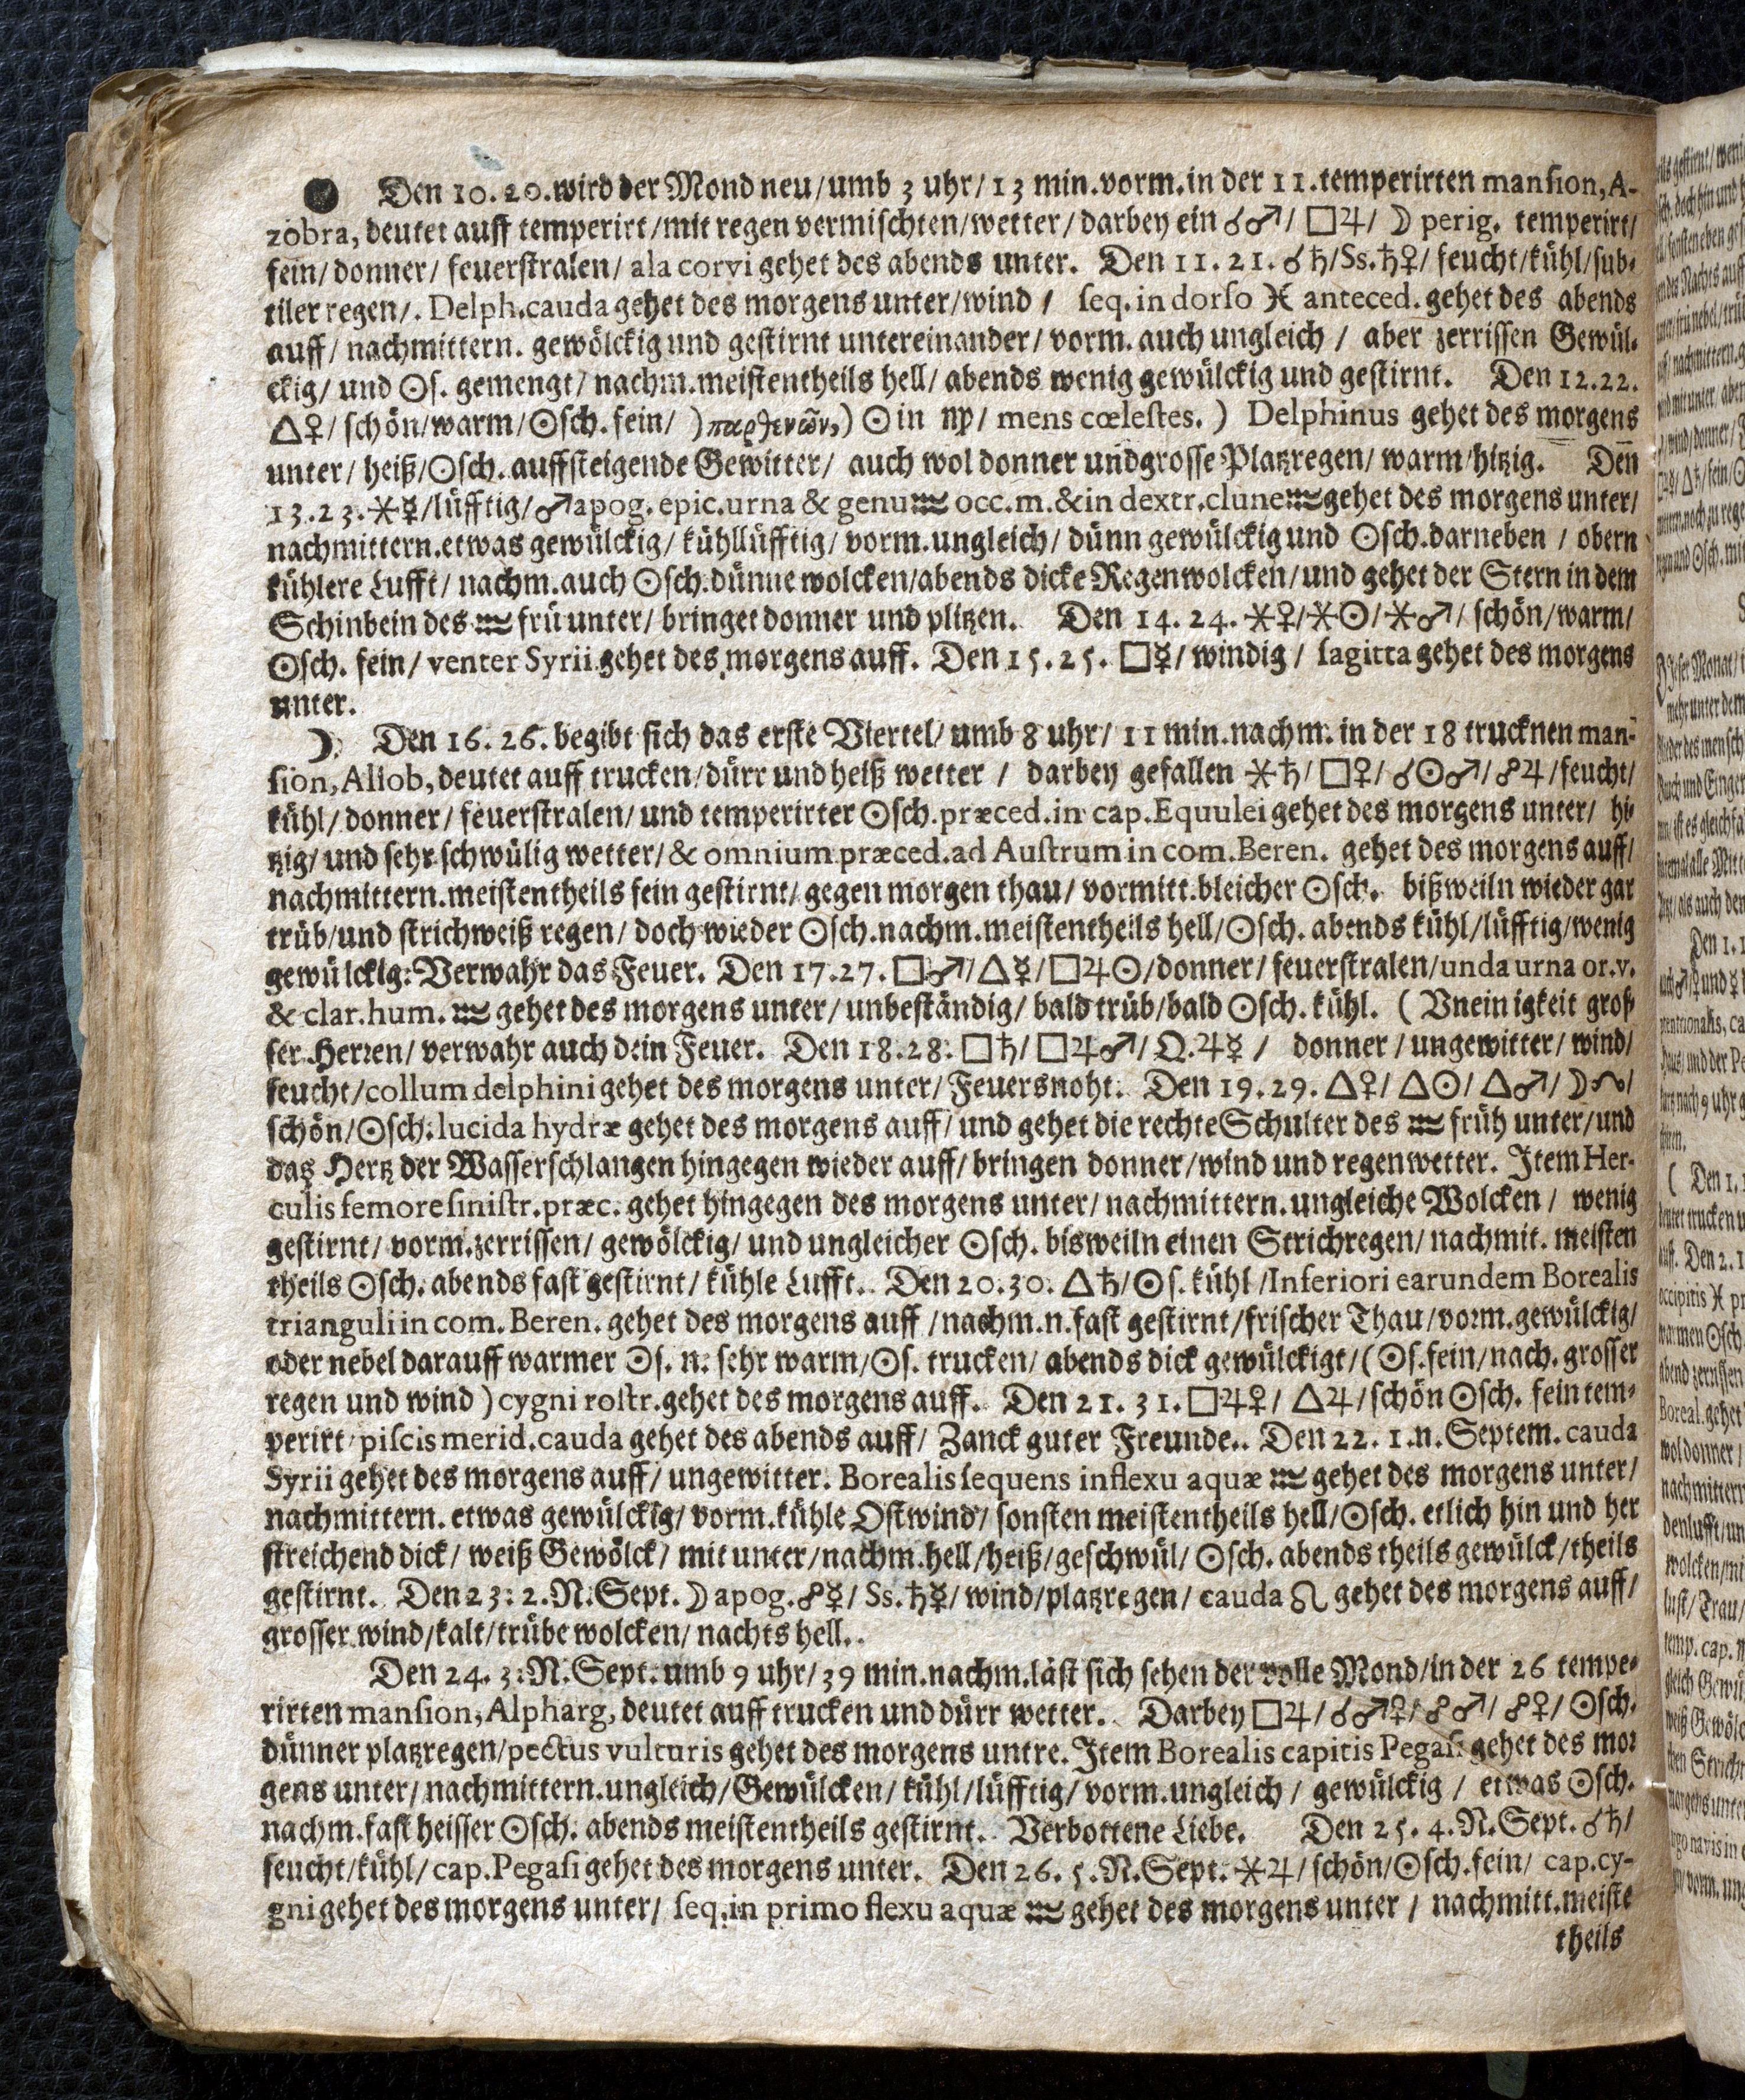 ● Den 10. 20. wird der Mond neu/umb 3 uhr/13 min. vorm. in der 11. temperirten manſion, A-
zobra, deutet auff temperirt/mit regen vermiſchten/wetter/darbey ein ☌♂/ □♃/ ☽ perig. temperirt/
fein/ donner/ feuerſtralen/ ala corvi gehet des abends unter. Den 11. 21. ☌♄/Ss.♄♀/ feucht/kühl/ſub-
tiler regen/. Delph. cauda gehet des morgens unter/wind / ſeq. in dorſo ♓ anteced. gehet des abends
auff/ nachmittern. gewölckig und geſtirnt untereinander/ vorm. auch ungleich / aber zerriſſen Gewül-
ckig/ und ☉ſ. gemengt/ nachm. meiſtentheils hell/ abends wenig gewülckig und geſtirnt. Den 12. 22.
△♀/ ſchön/warm/☉ſch. fein/ )παρθενῶν,) ☉ in ♍/ mens cœleſtes. ) Delphinus gehet des morgens
unter/ heiß/☉ſch. auffſteigende Gewitter/ auch wol donner und groſſe Platzregen/ warm/hitzig. Den
13. 23. ⚹☿/lüfftig/♂apog. epic. urna & genu ♒ occ. m. & in dextr. clune ♒ gehet des morgens unter/
nachmittern. etwas gewülckig/ kühllüfftig/ vorm. ungleich/ dünn gewülckig und ☉ſch. darneben / obern
kühlere Lufft/ nachm. auch ☉ſch. dünne wolcken/abends dicke Regenwolcken/und gehet der Stern in dem
Schinbein des ♒ frü unter/ bringet donner und plitzen. Den 14. 24. ⚹♀/⚹☉/⚹♂/ ſchön/warm/
☉ſch. fein/ venter Syrii gehet des morgens auff. Den 15. 25. □☿/ windig / ſagitta gehet des morgens
unter.
☽ Den 16. 26. begibt ſich das erſte Viertel/ umb 8 uhr/ 11 min. nachm. in der 18 trucknen man-
ſion, Aliob, deutet auff trucken/dürr und heiß wetter / darbey gefallen ⚹♄/ □♀/ ☌☉♂/ ☍♃/feucht/
kühl/ donner/ feuerſtralen/ und temperirter ☉ſch. præced. in cap. Equulei gehet des morgens unter/ hi-
tzig/ und ſehr ſchwülig wetter/ & omnium præced. ad Auſtrum in com. Beren. gehet des morgens auff/
nachmittern. meiſtentheils fein geſtirnt/ gegen morgen thau/ vormitt. bleicher ☉ſch. bißweiln wieder gar
trüb/und ſtrichweiß regen/ doch wieder ☉ſch. nachm. meiſtentheils hell/☉ſch. abends kühl/lüfftig/wenig
gewülckig: Verwahr das Feuer. Den 17. 27. □♂/△☿/□♃☉/donner/ feuerſtralen/unda urna or. v.
& clar. hum. ♒ gehet des morgens unter/ unbeſtändig/ bald trüb/bald ☉ſch. kühl. ( Vneinigkeit groſ-
ſer Herren/ verwahr auch dein Feuer. Den 18. 28. □♄/□♃♂/ Q.♃☿ / donner / ungewitter/ wind/
feucht/collum delphini gehet des morgens unter/ Feuersnoht. Den 19. 29. △♀/ △☉/ △♂/ ☽☊/
ſchön/☉ſch. lucida hydræ gehet des morgens auff/ und gehet die rechte Schulter des ♒ früh unter/und
das Hertz der Waſſerſchlangen hingegen wieder auff/ bringen donner/wind und regenwetter. Item Her-
culis femore ſiniſtr. præc. gehet hingegen des morgens unter/ nachmittern. ungleiche Wolcken / wenig
geſtirnt/ vorm. zerriſſen/ gewölckig/ und ungleicher ☉ſch. bisweiln einen Strichregen/ nachmit. meiſten
theils ☉ſch. abends faſt geſtirnt/ kühle Lufft. Den 20. 30. △♄/☉ſ. kühl /Inferiori earundem Borealis
trianguli in com. Beren. gehet des morgens auff /nachm. n. faſt geſtirnt/friſcher Thau/vorm. gewülckig/
oder nebel darauff warmer ☉ſ. n. ſehr warm/☉ſ. trucken/ abends dick gewülckigt/ (☉ſ. fein/nach. groſſer
regen und wind ) cygni roſtr. gehet des morgens auff. Den 21. 31. □♃♀/ △♃/ſchön ☉ſch. fein tem-
perirt/piſcis merid. cauda gehet des abends auff/ Zanck guter Freunde.. Den 22. 1. n. Septem. cauda
Syrii gehet des morgens auff/ ungewitter. Borealis ſequens in flexu aquæ ♒ gehet des morgens unter/
nachmittern. etwas gewülckig/ vorm. kühle Oſtwind/ ſonſten meiſtentheils hell/☉ſch. etlich hin und her
ſtreichend dick/ weiß Gewölck/ mit unter/nachm. hell/heiß/geſchwül/ ☉ſch. abends theils gewülck/theils
geſtirnt. Den 23: 2. N. Sept. ☽ apog. ☍☿/ Ss. ♄☿/ wind/platzregen/ cauda ♌ gehet des morgens auff/
groſſer wind/kalt/trübe wolcken/ nachts hell..
Den 24. 3: N. Sept. umb 9 uhr/39 min. nachm. läſt ſich ſehen der volle Mond/in der 26 tempe-
rirten manſion, Alpharg, deutet auff trucken und dürr wetter. Darbey □♃/☌♂♀/☍♂/ ☍♀/ ☉ſch.
dünner platzregen/pectus vulturis gehet des morgens untre. Item Borealis capitis Pegaſi gehet des mor
gens unter/nachmittern. ungleich/Gewülcken/ kühl/lüfftig/ vorm. ungleich / gewülckig / etwas ☉ſch.
nachm. faſt heiſſer ☉ſch. abends meiſtentheils geſtirnt. Verbottene Liebe. Den 25. 4. N. Sept. ☌♄/
feucht/kühl/ cap. Pegaſi gehet des morgens unter. Den 26. 5. N. Sept. ⚹♃/ ſchön/☉ſch. fein/ cap. cy-
gni gehet des morgens unter/ ſeq. in primo flexu aquæ ♒ gehet des morgens unter / nachmitt. meiſte
theils